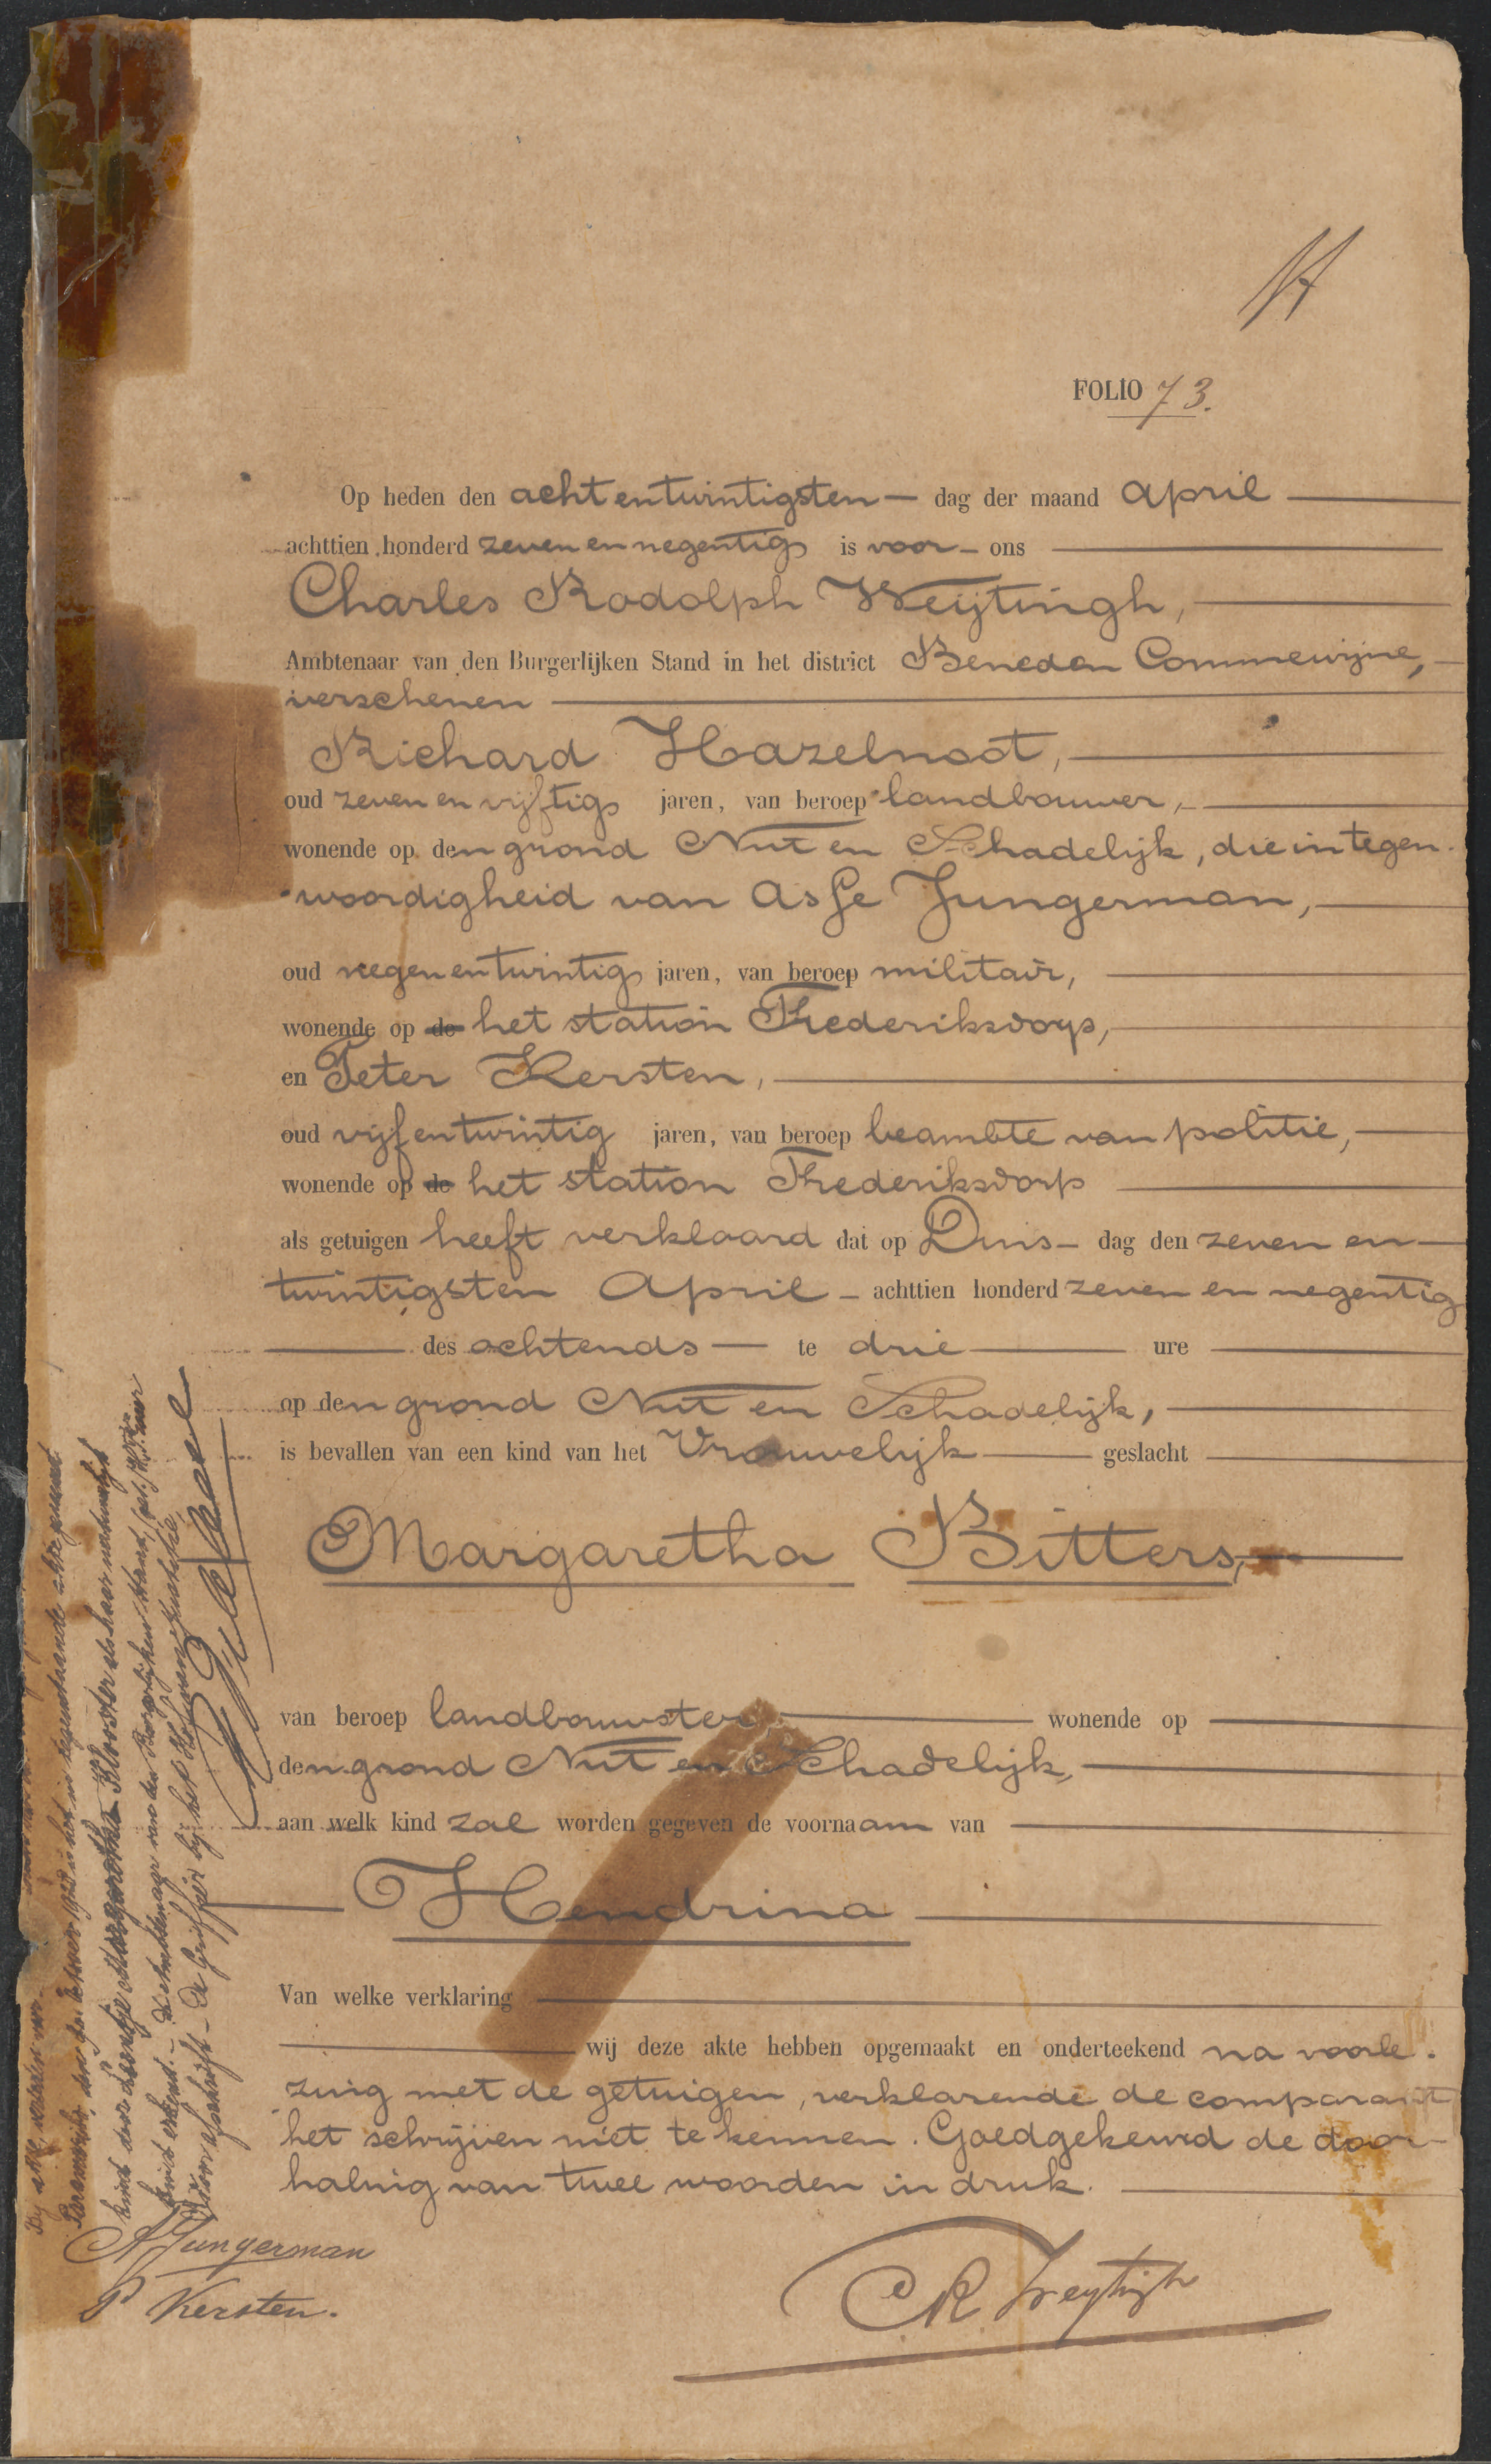 FOLIO 73.
Op heden den achtentwintigsten — dag der maand April
achttien honderd zeven en negentig is voor - ons
Charles Rodolph Weijtingh,
Ambtenaar van den Burgerlijken Stand in het district Beneden Commewijne,
verschenen
Richard Hazelnoot,
oud zeven en vijftig jaren, van beroep landbouwer,
wonende op den grond Nut en Schadelijk, die in tegen-
woordigheid van Asje Jungerman,
oud negen en twintig jaren, van beroep militair,
wonende op de het station Frederiksdorp,
en Peter Kersten,
oud vijf en twintig jaren, van beroep beambte van politie,
wonende op de het station Frederiksdorp
als getuigen heeft verklaard dat op Dins - dag den zeven en
twintigsten April - achttien honderd zeven en negentig
des ochtends — te drie ure
op den grond Nut en Schadelijk,
is bevallen van een kind van het Vrouwelijk geslacht
Margaretha Bitters,
van beroep landbouwster, wonende op
den grond Nut en Schadelijk,
aan welk kind zal worden gegeven de voornaam van
Hendrina
Van welke verklaring
wij deze akte hebben opgemaakt en onderteekend na voorle-
zing met de getuigen, verklarende de comparant
het schrijven niet te kennen. Goedgekeurd de door-
haling van twee woorden in druk.
A Jungerman
P Kersten.
C R Weytingh
Paramaribo, den
kind door Leentje Margaretha Klooster als haar natuurlijk
kind erkend. - De Ambtenaar van den Burgerlijken Stand
Voor afschrift - De Griffier bij het Hof van Justitie,